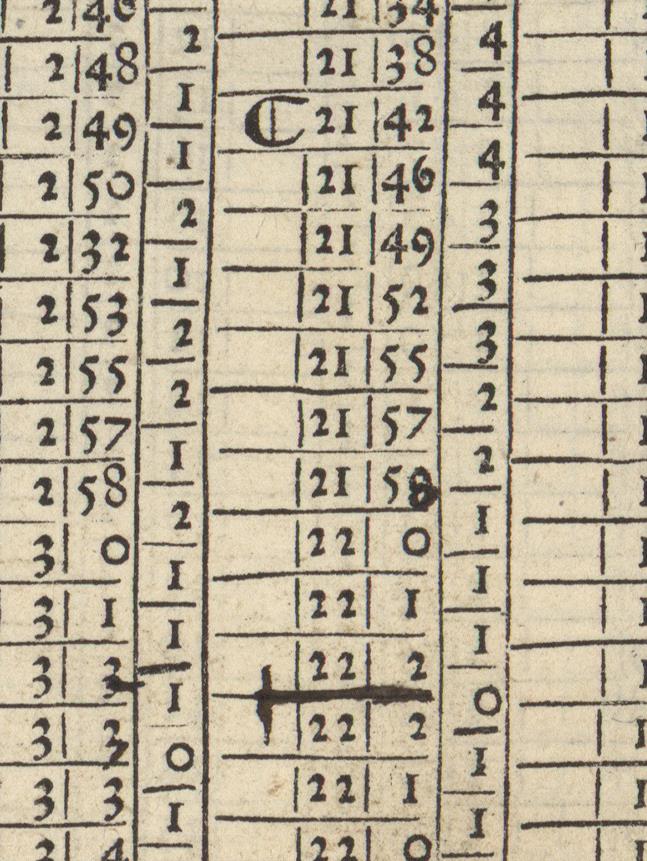 2 46 21 34
2 4
2 48 21 38
1 4
2 49 ℂ 21 42
1 4
2 50 21 46
2 3
2 32 21 49
1 3
2 53 21 52
2 3
2 55 21 55
2 2
2 57 21 57
1 2
2 58 21 58
2 1
3 0 22 0
1 1
3 1 22 1
1 1
3 22 2
1 0
3 22 2
0 1
3 3 22 1
1 1
3 4 22 0